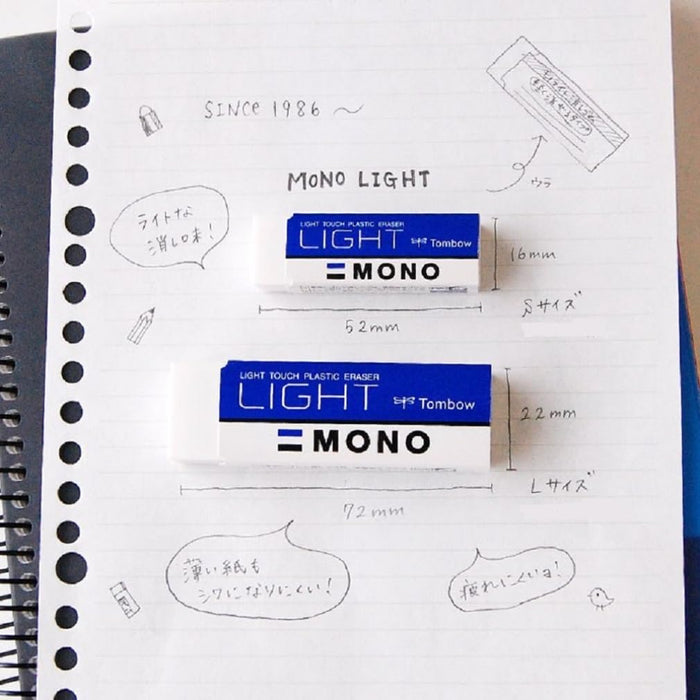 SINCE 1986 〜
MONO LIGHT
ウラ
ライトな
消し味!
LIGHT TOUCH PLASTIC ERASER
LIGHT Tombow
MONO
16mm
52mm
Sサイズ
LIGHT TOUCH PLASTIC ERASER
LIGHT Tombow
MONO
22mm
72mm
Lサイズ
薄い紙も
シワになりにくい!
疲れにくいョ!